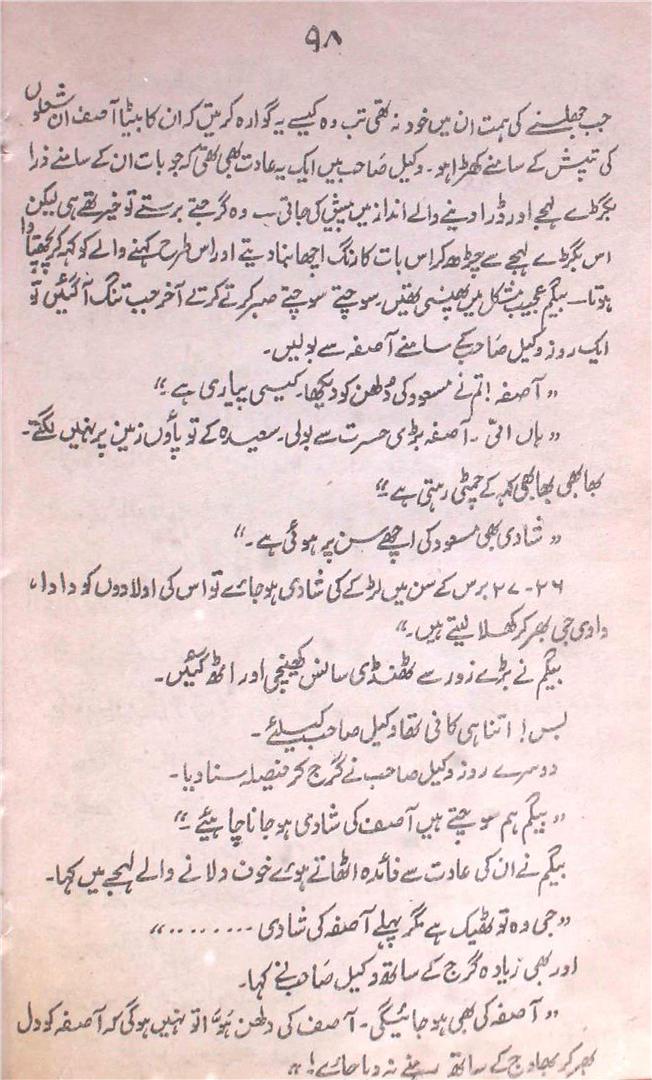 ۹۸
جب جھلسنے کی ہمت ان میں خود نہ تھی تب وہ کیسے یہ گوارہ کرتیں کہ ان کا بیٹا آصف ان شعلوں
کی تپش کے سامنے کھڑا ہو۔ وکیل صاحب میں ایک یہ عادت بھی تھی کہ جو بات ان کے سامنے ذرا
بگڑے لہجے اور ڈرا دینے والے انداز میں پیش کی جاتی تب وہ گرجتے برستے تو خیر تھے ہی لیکن
اس بگڑے لہجے سے چڑھ کر اس بات کا رنگ اچھا بنا دیتے اور اس طرح کہنے والے کو کہہ کر پچھتاوا
ہوتا۔ بیگم عجیب مشکل میں پھنسی تھیں۔ سوچتے سوچتے صبر کرتے کرتے آخر جب تنگ آ گئیں تو
ایک روز وکیل صاحب کے سامنے آصفہ سے بولیں۔
”آصفہ! تم نے مسعود کی دُلھن کو دیکھا۔ کیسی پیاری ہے۔“
”ہاں امّی۔ آصفہ بڑی حسرت سے بولی۔ سعیدہ کے تو پاؤں زمین پر نہیں لگتے۔
بھابھی بھابھی کہہ کے چمٹی رہتی ہے۔“
”شادی بھی مسعود کی اچھے سن پر ہوئی ہے۔“
۲۶-۲۷ برس کے سن میں لڑکے کی شادی ہو جائے تو اس کی اولادوں کو دادا،
دادی جی بھر کر کھلا لیتے ہیں۔“
بیگم نے بڑے زور سے ٹھنڈی سانس کھینچی اور اٹھ گئیں۔
بس! اتنا ہی کافی تھا وکیل صاحب کیلئے۔
دوسرے روز وکیل صاحب نے گرج کر فیصلہ سنا دیا۔
”بیگم ہم سوچتے ہیں آصف کی شادی ہو جانا چاہیئے۔“
بیگم نے ان کی عادت سے فائدہ اٹھاتے ہوئے خوف دلانے والے لہجے میں کہا۔
”جی وہ تو ٹھیک ہے مگر پہلے آصفہ کی شادی ........“
اور بھی زیادہ گرج کے ساتھ وکیل صاحب نے کہا۔
”آصفہ کی بھی ہو جائیگی۔ آصف کی دلھن ہوّا تو نہیں ہوگی کہ آصفہ کو دل
بھر کر بھاوج کے ساتھ رہنے نہ دیا جائے!“